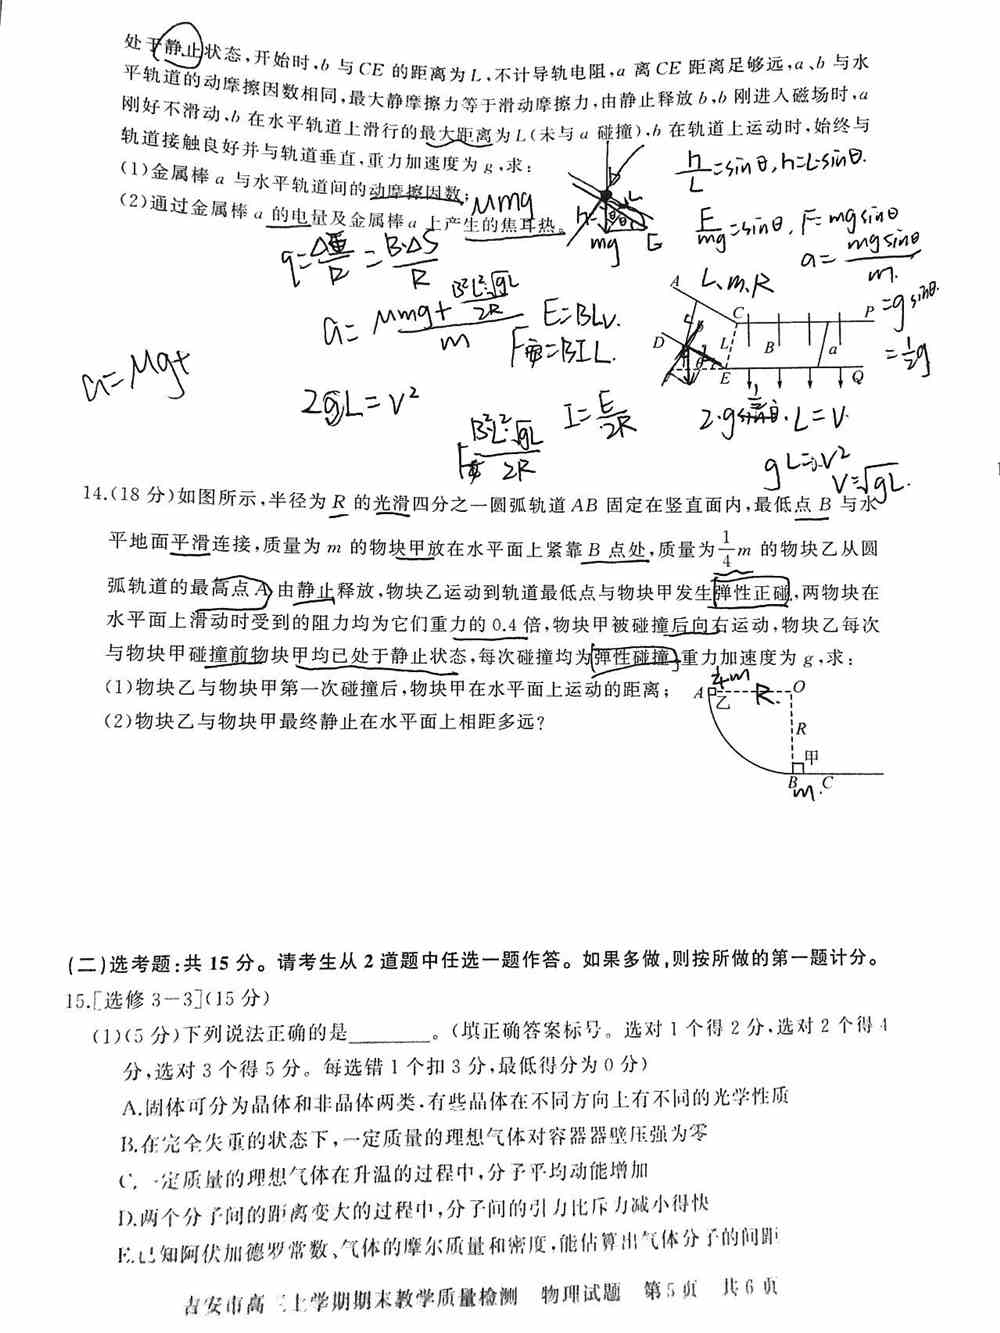 处于静止状态,开始时,b 与 CE 的距离为 L,不计导轨电阻,a 离 CE 距离足够远,a、b 与水
平轨道的动摩擦因数相同,最大静摩擦力等于滑动摩擦力,由静止释放 b,b 刚进入磁场时,a
刚好不滑动,b 在水平轨道上滑行的最大距离为 L(未与 a 碰撞),b 在轨道上运动时,始终与
轨道接触良好并与轨道垂直,重力加速度为 g,求:
(1)金属棒 a 与水平轨道间的动摩擦因数;
(2)通过金属棒 a 的电量及金属棒 a 上产生的焦耳热。
μmg
b
L
h
θ
mg
h/L=sinθ, h=L·sinθ.
F/mg=sinθ, F=mgsinθ
a=mgsinθ/m.
=g sinθ.
=1/2g
q=ΔΦ/R=B·ΔS/R
a=μmg+B²L²√gL/2R/m
E=BLv.
F安=BIL.
I=E/2R
a=μg+
2gL=v²
F安 B²L²√gL/2R
L.m.R
A
C
P
D
L
B
a
E
Q
2·g·L=v
gL=v²
v=√gL.
14.(18 分)如图所示,半径为 R 的光滑四分之一圆弧轨道 AB 固定在竖直面内,最低点 B 与水
平地面平滑连接,质量为 m 的物块甲放在水平面上紧靠 B 点处,质量为1/4m 的物块乙从圆
弧轨道的最高点 A 由静止释放,物块乙运动到轨道最低点与物块甲发生弹性正碰,两物块在
水平面上滑动时受到的阻力均为它们重力的 0.4 倍,物块甲被碰撞后向右运动,物块乙每次
与物块甲碰撞前物块甲均已处于静止状态,每次碰撞均为弹性碰撞,重力加速度为 g,求:
(1)物块乙与物块甲第一次碰撞后,物块甲在水平面上运动的距离;
(2)物块乙与物块甲最终静止在水平面上相距多远?
1/4m
A
乙
R.
O
R
甲
B
C
m.
(二)选考题:共 15 分。请考生从 2 道题中任选一题作答。如果多做,则按所做的第一题计分。
15.[选修 3-3](15 分)
(1)(5 分)下列说法正确的是________。(填正确答案标号。选对 1 个得 2 分,选对 2 个得 4
分,选对 3 个得 5 分。每选错 1 个扣 3 分,最低得分为 0 分)
A.固体可分为晶体和非晶体两类,有些晶体在不同方向上有不同的光学性质
B.在完全失重的状态下,一定质量的理想气体对容器器壁压强为零
C.一定质量的理想气体在升温的过程中,分子平均动能增加
D.两个分子间的距离变大的过程中,分子间的引力比斥力减小得快
E.已知阿伏加德罗常数、气体的摩尔质量和密度,能估算出气体分子的间距
吉安市高三上学期期末教学质量检测 物理试题 第 5 页 共 6 页